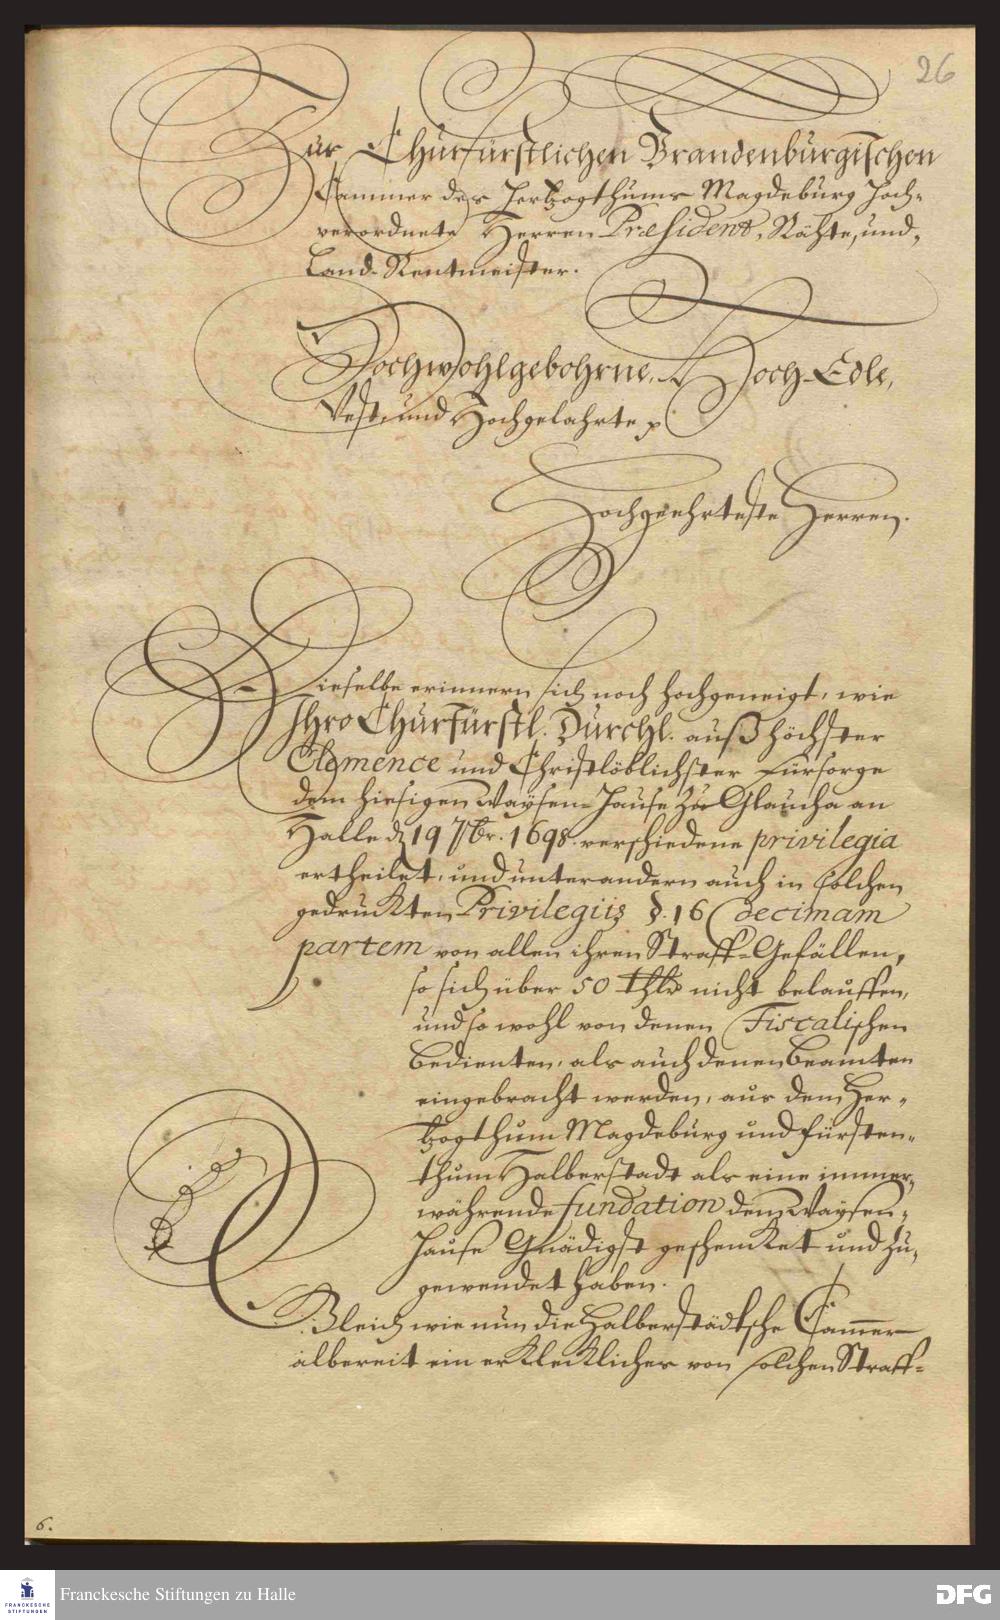 26
Zur Churfürstlichen Brandenburgischen
Cammer des Hertzogthums Magdeburg Hoch-
verordnete Herren Præsident, Räthe, und,
Land-Rentmeister.
Hochwohlgebohrne, Hoch-Edle,
Vest, und Hochgelahrte
Hochgeehrteste Herren.
Dieselbe erinnern sich noch hochgeneigt, wie
Ihro Churfürstl. Durchl. auß höchster
Clemence und Christlöblichster Fürsorge
dem hiesigen Waysen-Hause zu Glaucha an
Halle d. 19 7br. 1698. verschiedene privilegia
ertheilet, und unter andern auch in solchen
gedruckten Privilegiis §. 16 decimam
partem von allen ihren Straff-Gefällen,
so sich über 50 thlr nicht belauffen,
und so wohl von denen Fiscalischen
bedienten, als auch denen beamten
eingebracht werden, aus dem Her-
tzogthum Magdeburg und fürsten-
thum Halberstadt als eine immer-
währende fundation dem Waysen-
Hause Gnädigst geschencket und zu-
gewendet haben.
Gleich wie nun die Halberstädtsche Cammer
albereit ein erkleckliches von solchen Straff-
6.
FRANCKESCHE
STIFTUNGEN
Franckesche Stiftungen zu Halle
DFG